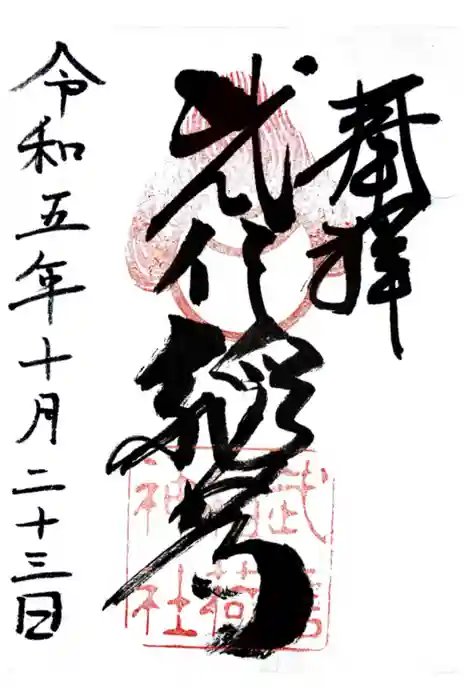 奉拝
武信稲荷
武信
稲荷
神社
令和五年十月二十三日